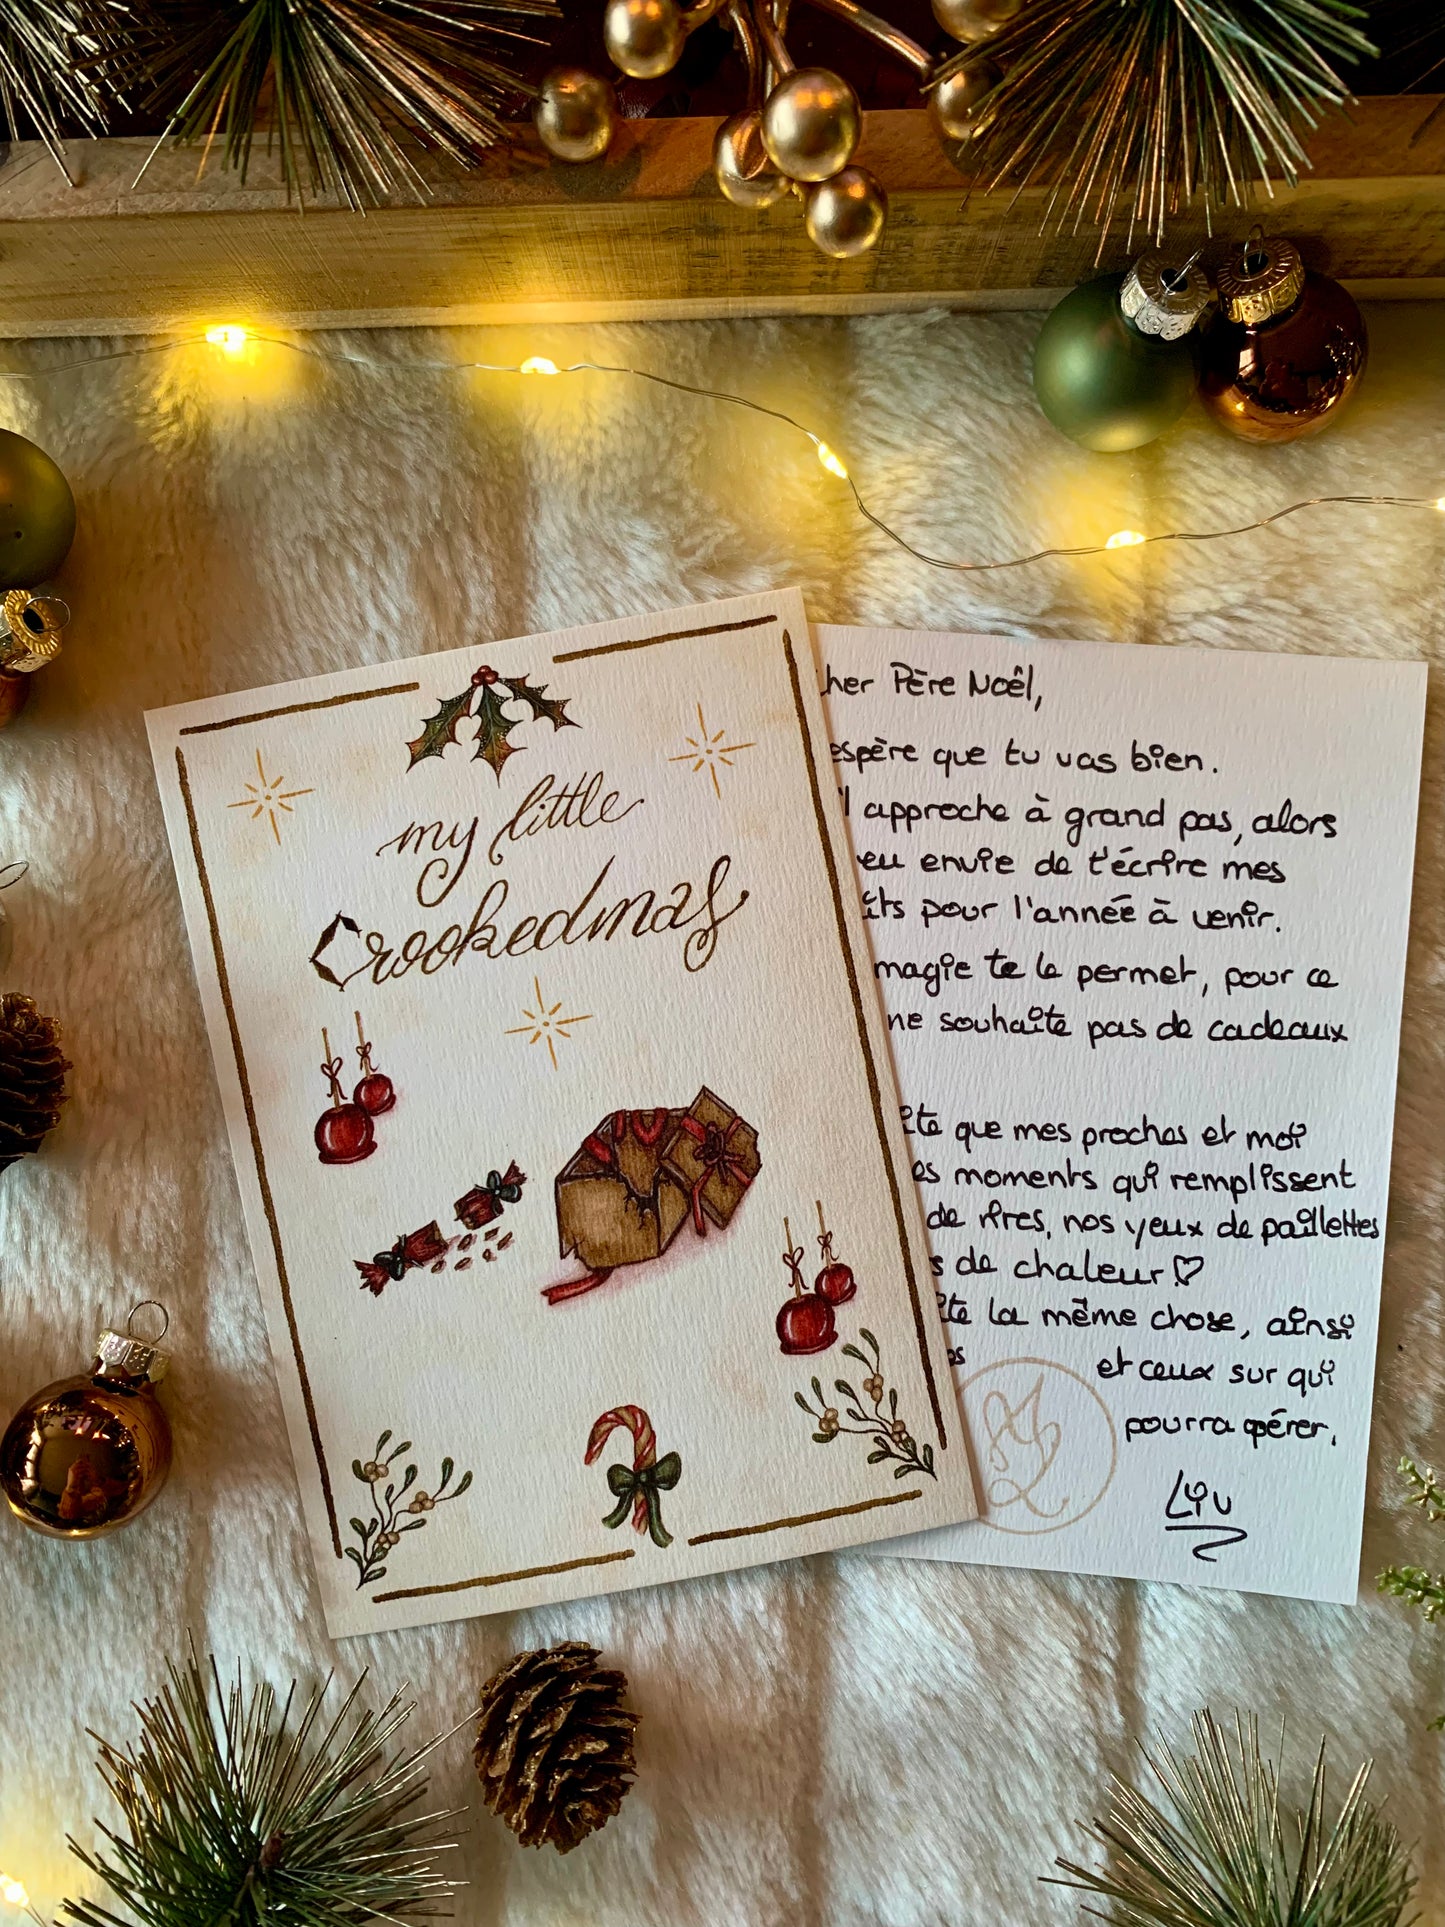 my little
Crookedmas
Père Noël,
que tu vas bien.
approche à grand pas, alors
envie de t'écrire mes
pour l'année à venir.
magie te le permet, pour ce
ne souhaite pas de cadeaux
que mes proches et moi
moments qui remplissent
de rires, nos yeux de paillettes
de chaleur ♡
la même chose, ainsi
et ceux sur qui
pourra opérer.
Liv